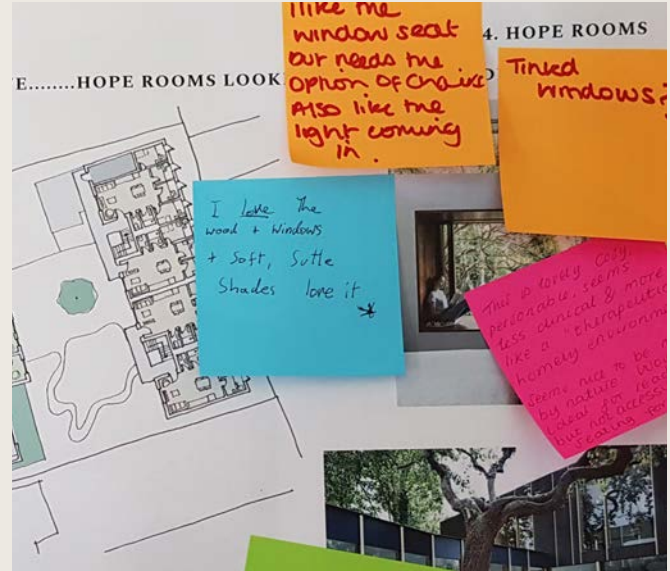 4. HOPE ROOMS
E........HOPE ROOMS LOOK
I like the
window seat
but needs the
option of chairs
Also like the
light coming
in.
Tinted
windows?
I love the
wood + windows
+ Soft, Sutle
Shades love it
This is lovely. Cosy,
personable, seems
less clinical & more
like a "therapeutic
homely environm
Seems nice to be
by nature
ideal for
but not access
seating